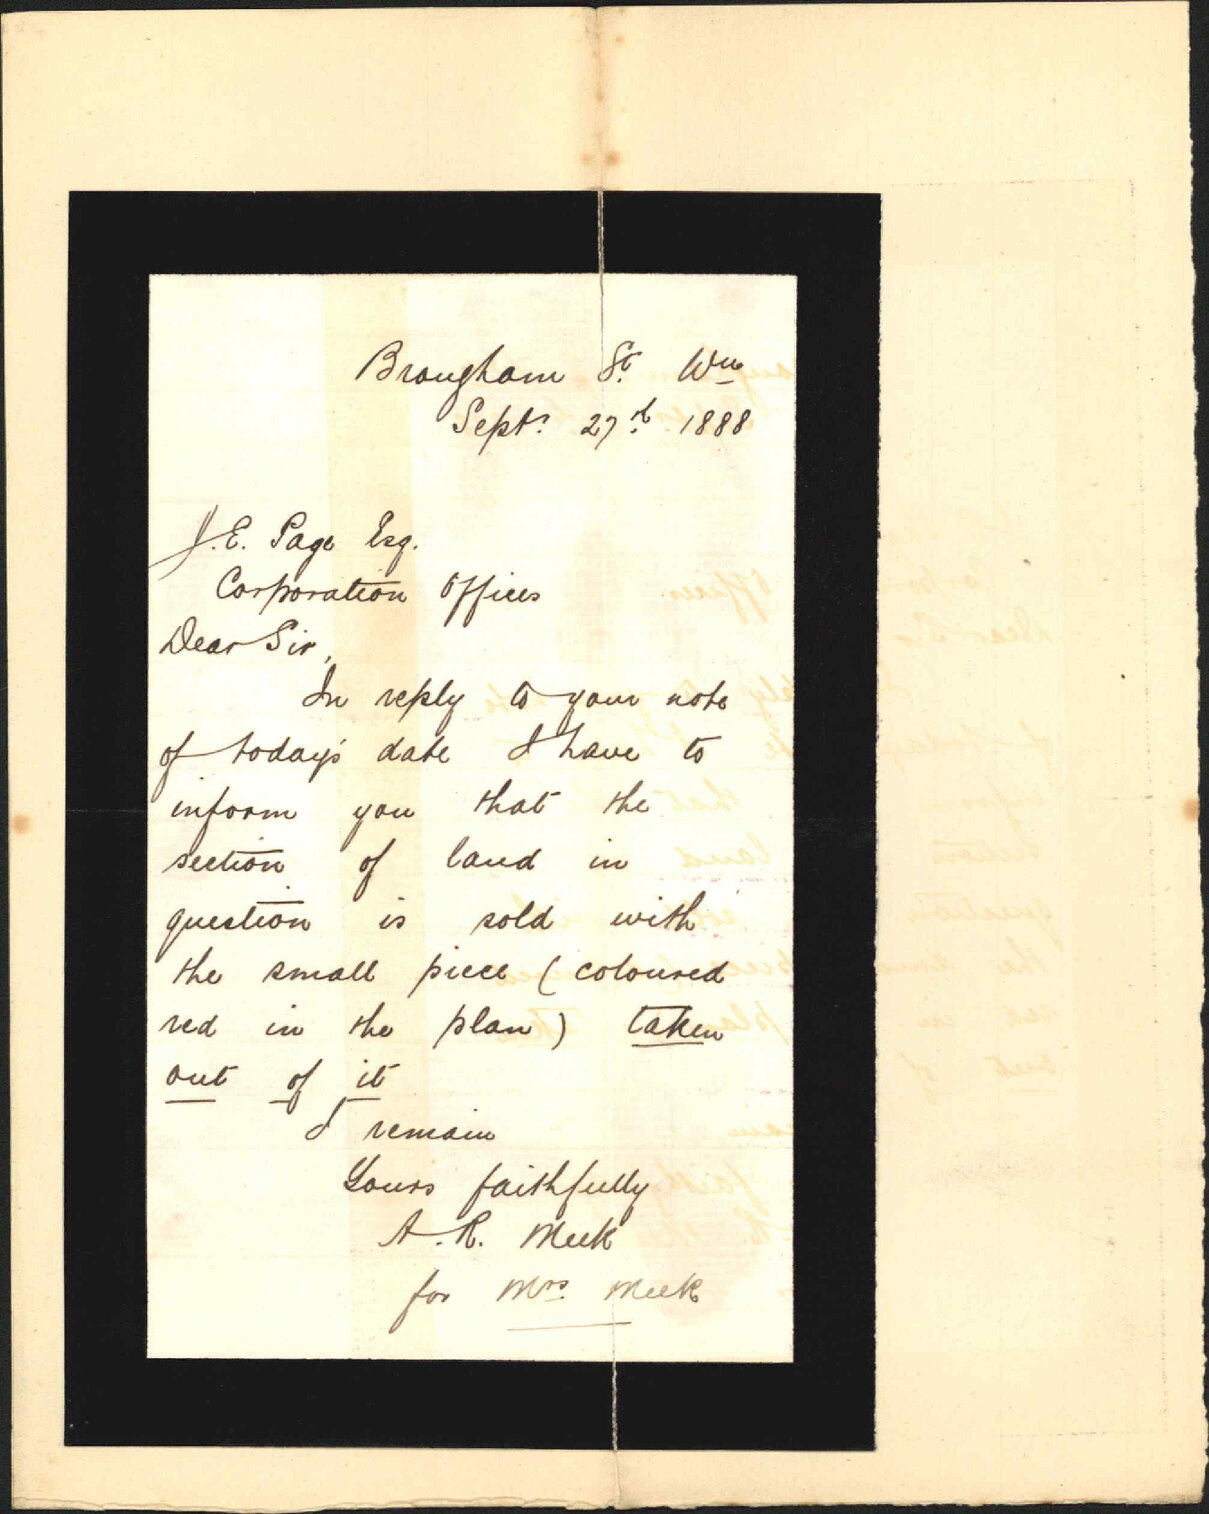 Brougham St. Wn
Sept. 27d. 1888
J. E. Page Esq.
Corporation Offices
Dear Sir,
In reply to your note
of today's date I have to
inform you that the
section of land in
question is sold with
the small piece (coloured
red in the plan) taken
out of it
I remain
Yours faithfully
A. R. Meek
for Mrs. Meek